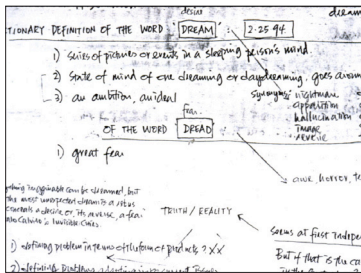 desire
dream
TIONARY DEFINITION OF THE WORD "DREAM": 2.25 94
1) series of pictures or events in a sleeping person's mind.
2) state of mind of one dreaming or daydreaming. goes aroun
3) an ambition, an ideal
synonyms: nightmare
apparition
hallucination
image
reverie
fear
OF THE WORD DREAD
1) great fear
awe, horror, te
imaginable can be dreamed, but
the most unexpected dream is a rebus
conceals a desire or, its reverse, a fear
Calvino's Invisible Cities
TRUTH / REALITY
seems at first independ
1) defining problem in terms of the form of products? XX
But if that is the ca
2) defining problems